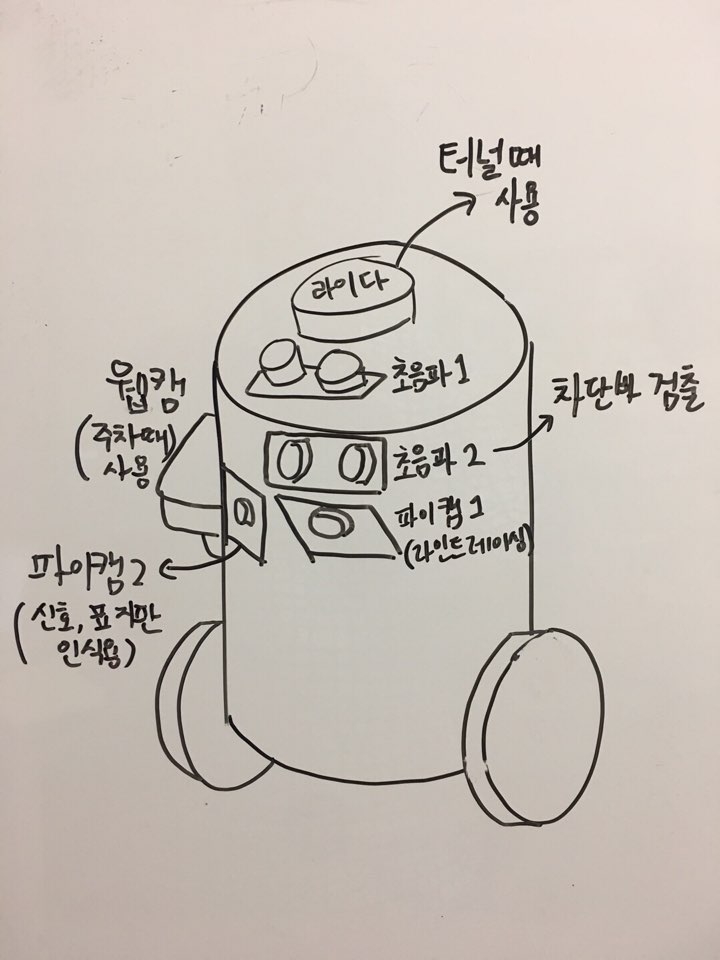 터널 때
사용
라이다
초음파 1
웹캠
(주차때)
사용
차단바 검출
초음파 2
파이캠 1
(라인트레이싱)
파이캠 2
(신호, 표지판
인식용)